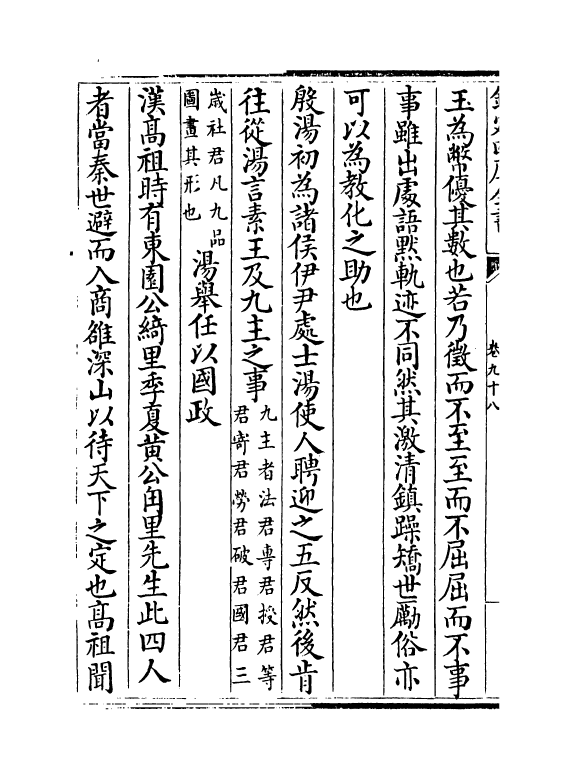 欽定四庫全書
卷九十八
玉為幣優其數也若乃徵而不至至而不屈屈而不事
事雖出處語黙軌迹不同然其激清鎮躁矯世勵俗亦
可以為教化之助也
殷湯初為諸侯伊尹處士湯使人聘迎之五反然後肯
往從湯言素王及九主之事九主者法君專君授君等
君寄君勞君破君國君三
歲社君凡九品
圖畫其形也湯舉任以國政
漢髙祖時有東園公綺里季夏黄公甪里先生此四人
者當秦世避而入商雒深山以待天下之定也髙祖聞